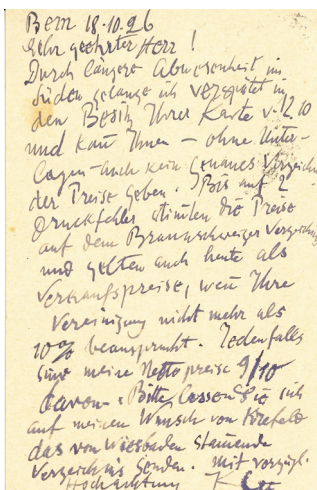 Bern 18.10.26
Sehr geehrter Herr!
Durch längere Abwesenheit im
Süden gelange ich verspätet in
den Besitz Ihrer Karte v. 12.10
und kan̄ Ihnen – ohne Unter-
lagen – auch kein genaues Verzeichn
der Preise geben. Bis auf 2
Druckfehler stim̄ten die Preise
auf dem Braunschweiger Verzeichnis
und gelten auch heute als
Verkaufspreise, wen̄ Ihre
Vereinigung nicht mehr als
10% beansprucht. Jedenfalls
sind meine Nettopreise 9/10
davon. Bitte lassen Sie sich
auf meinen Wunsch von Krefeld
das von Wiesbaden stam̄ende
Verzeichnis senden. Mit vorzügl.
Hochachtung